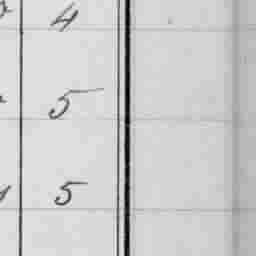 4
5
5